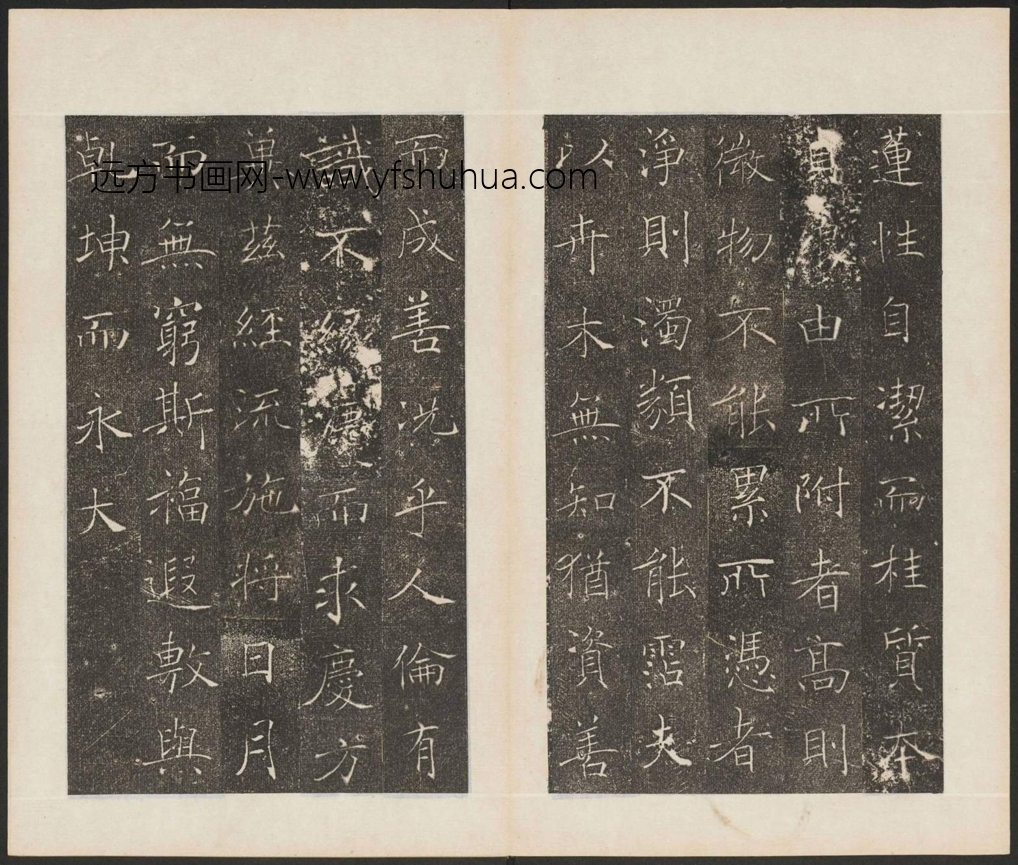 蓮性自潔而桂質本
貞由所附者高則
微物不能累所憑者
淨則濁類不能霑夫
以卉木無知猶資善
而成善況乎人倫有
識不緣慶而求慶方
冀茲經流施將日月
而無窮斯福遐敷與
乾坤而永大
远方书画网-www.yfshuhua.com